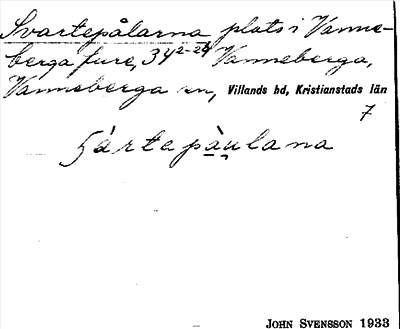 Svartepålarna plats i Vanne-
berga fure, 34²⁻²⁴ Vanneberga,
Vanneberga sn, Villands hd, Kristianstads län
7
rtepa̱u̯lana
JOHN SVENSSON 1933